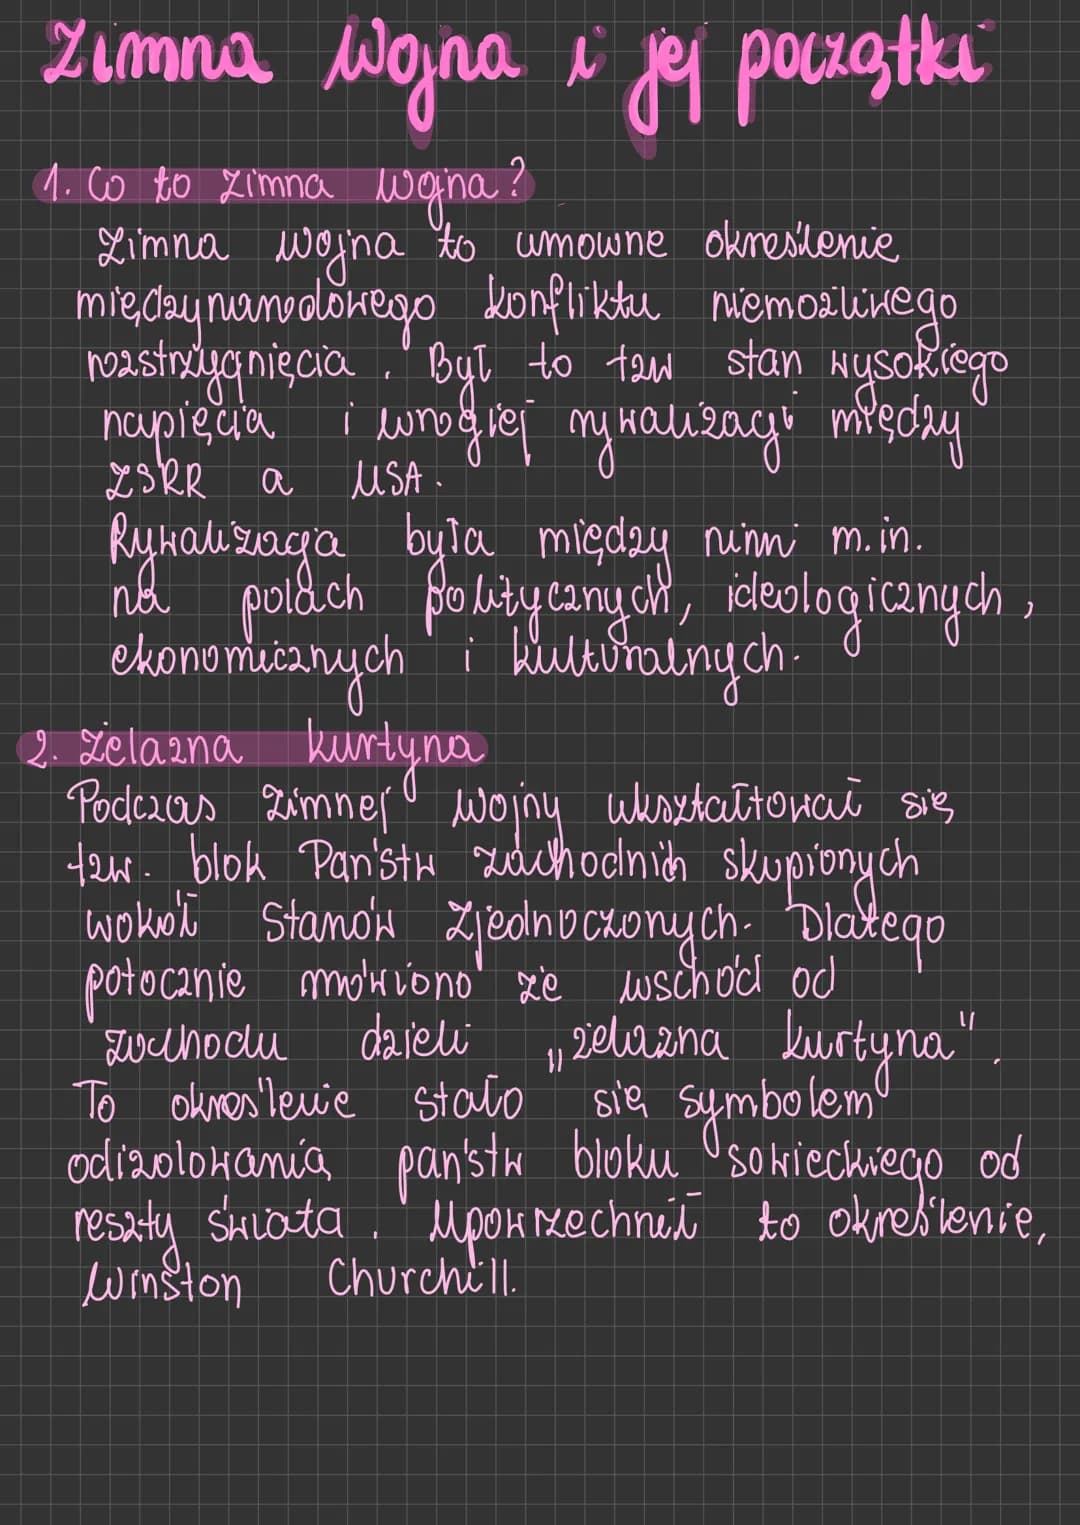 Zimna Wojna i jej początki
1. Co to Zimna Wojna?
Zimna wojna to umowne określenie
międzynarodowego konfliktu niemożliwego
rozstrzygnięcia. Był to tzw stan wysokiego
napięcia i wrogiej rywalizacji między
ZSRR a USA.
Rywalizacja była między nimi m.in.
na polach politycznych, ideologicznych,
ekonomicznych i kulturalnych.
2. Żelazna kurtyna
Podczas Zimnej Wojny ukształtował się
tzw. blok Państw zachodnich skupionych
wokół Stanów Zjednoczonych. Dlatego
potocznie mówiono że wschód od
zachodu dzieli „żelazna kurtyna".
To określenie stało się symbolem
odizolowania państw bloku sowieckiego od
reszty świata. Upowrzechnił to określenie,
Winston Churchill.